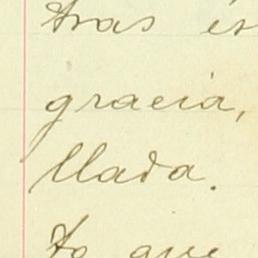 tras és
gracia,
llada.
to que